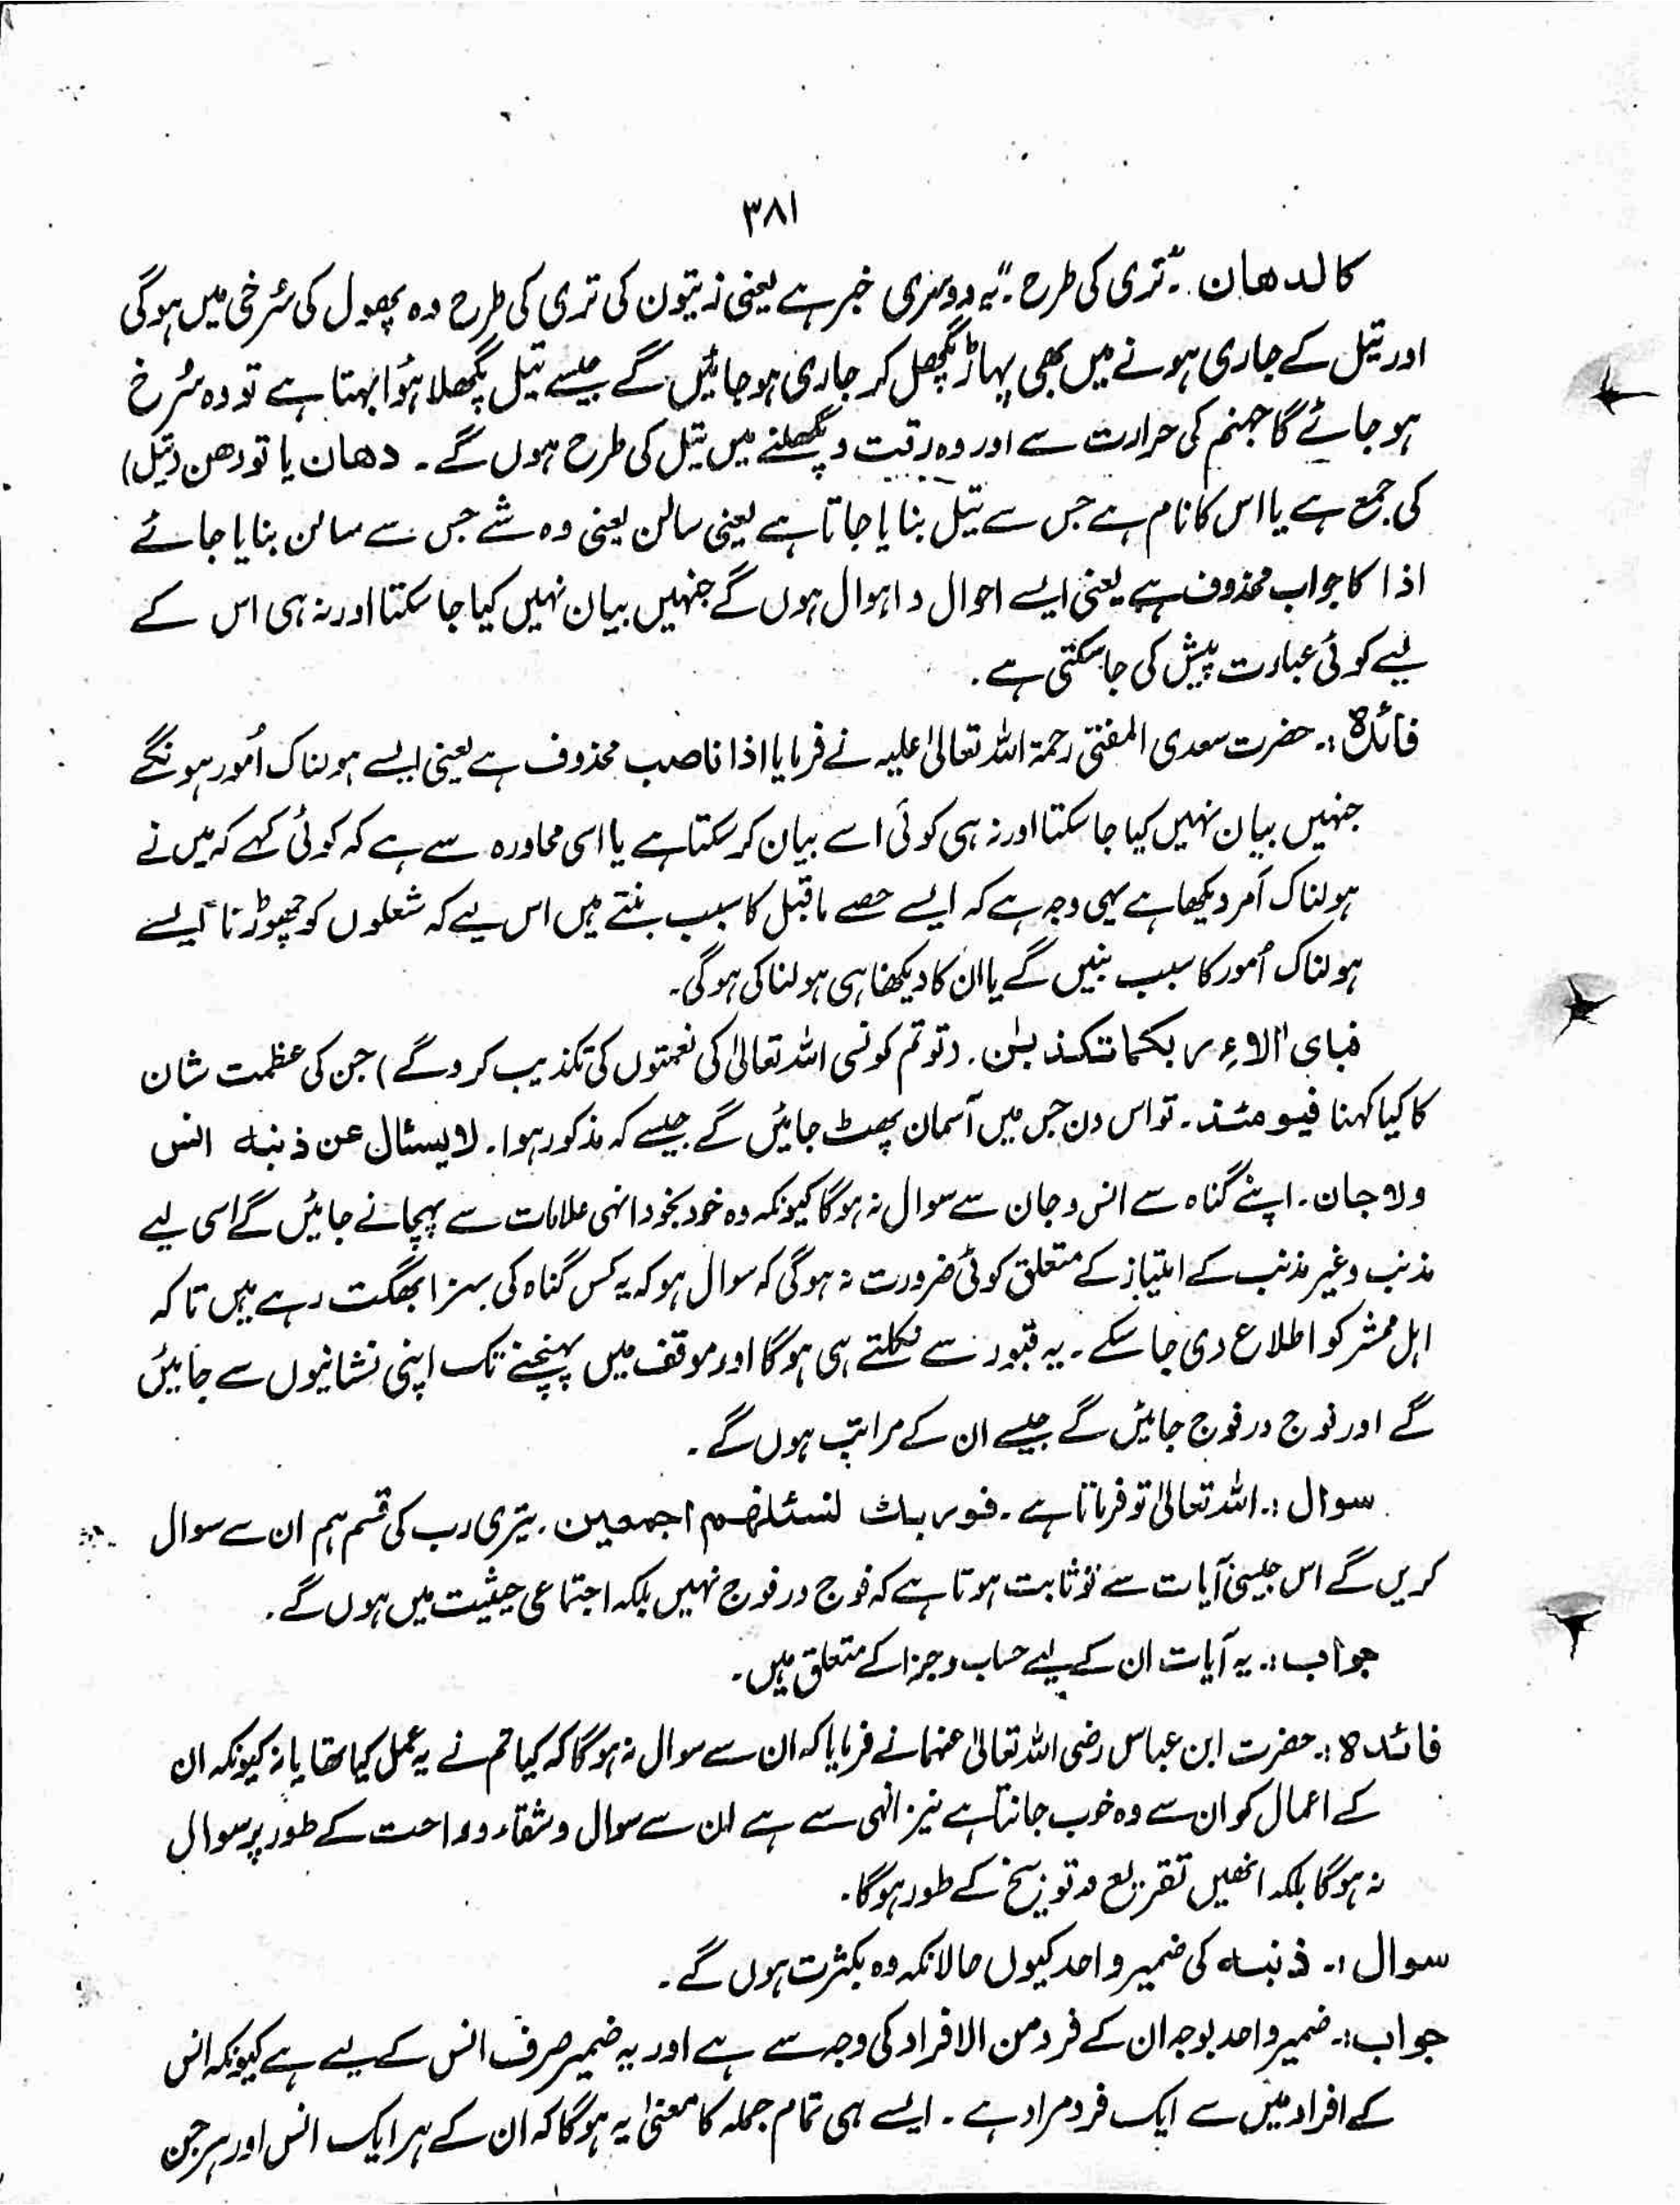 ۳۸۱
کالدھان ۔ "تری کی طرح ۔" یہ دوسری خبر ہے یعنی زیتون کی تری کی طرح وہ پھول کی سُرخی میں ہوگی
اور تیل کے جاری ہونے میں بھی پہاڑ پگھل کر جاری ہوجائیں گے جیسے تیل پگھلا ہُوا بہتا ہے تو وہ سُرخ
ہو جائے گا جہنم کی حرارت سے اور وہ رقیت و پگھلنے میں تیل کی طرح ہوں گے ۔ دھان یا تو دھن (تیل)
کی جمع ہے یا اس کا نام ہے جس سے تیل بنایا جاتا ہے یعنی سالن یعنی وہ شے جس سے سالن بنایا جائے
اذا کا جواب محذوف ہے یعنی ایسے احوال و اہوال ہوں گے جنہیں بیان نہیں کیا جا سکتا اور نہ ہی اس کے
لیے کوئی عبارت پیش کی جا سکتی ہے ۔
فائدہ :۔ حضرت سعدی المفتی رحمۃ اللہ تعالیٰ علیہ نے فرمایا اذا ناصب محذوف ہے یعنی ایسے ہولناک اُمور ہونگے
جنہیں بیان نہیں کیا جا سکتا اور نہ ہی کوئی اسے بیان کر سکتا ہے یا اسی محاورہ سے ہے کہ کوئی کہے کہ میں نے
ہولناک اَمر دیکھا ہے یہی وجہ ہے کہ ایسے حصے ماقبل کا سبب بنتے ہیں اس لیے کہ شعلوں کو چھوڑنا ایسے
ہولناک اُمور کا سبب بنیں گے یا ان کا دیکھنا ہی ہولناکی ہوگی ۔
فبای اٰلاء ربکما تکذبٰن ۔ (تو تم کونسی اللہ تعالیٰ کی نعمتوں کی تکذیب کروگے) جن کی عظمت شان
کا کیا کہنا فیومئذ ۔ تو اس دن جس میں آسمان پھٹ جائیں گے جیسے کہ مذکور ہوا ۔ لا یسئال عن ذنبہ انس
ولا جان ۔ اپنے گناہ سے انس و جان سے سوال نہ ہوگا کیونکہ وہ خود بخود انہی علامات سے پہچانے جائیں گے اسی لیے
مذنب و غیر مذنب کے امتیاز کے متعلق کوئی ضرورت نہ ہوگی کہ سوال ہو کہ یہ کس گناہ کی سزا بھگت رہے ہیں تاکہ
اہل محشر کو اطلاع دی جا سکے ۔ یہ قبور سے نکلتے ہی ہوگا اور موقف میں پہنچنے تک اپنی نشانیوں سے جائیں
گے اور فوج در فوج جائیں گے جیسے ان کے مراتب ہوں گے ۔
سوال :۔ اللہ تعالیٰ تو فرماتا ہے ۔ فوربک لنسئلنھم اجمعین ۔ تیری رب کی قسم ہم ان سے سوال
کریں گے اس جیسی آیات سے تو ثابت ہوتا ہے کہ فوج در فوج نہیں بلکہ اجتماعی حیثیت میں ہوں گے ۔
جواب :۔ یہ آیات ان کے لیے حساب و جزا کے متعلق ہیں ۔
فائدہ :۔ حضرت ابن عباس رضی اللہ تعالیٰ عنہما نے فرمایا کہ ان سے سوال نہ ہوگا کہ کیا تم نے یہ عمل کیا تھا یا نہ کیونکہ ان
کے اعمال کو ان سے وہ خوب جانتا ہے نیز انہی سے ہے ان سے سوال وشفاء وراحت کے طور پر سوال
نہ ہوگا بلکہ انھیں تقریع و توبیخ کے طور ہوگا ۔
سوال :۔ ذنبہ کی ضمیر واحد کیوں حالانکہ وہ بکثرت ہوں گے ۔
جواب :۔ ضمیر واحد بوجہ ان کے فرد من الافراد کی وجہ سے ہے اور یہ ضمیر صرف انس کے لیے ہے کیونکہ انس
کے افراد میں سے ایک فرد مراد ہے ۔ ایسے ہی تمام جملہ کا معنیٰ یہ ہوگا کہ ان کے ہر ایک انس اور ہر جن